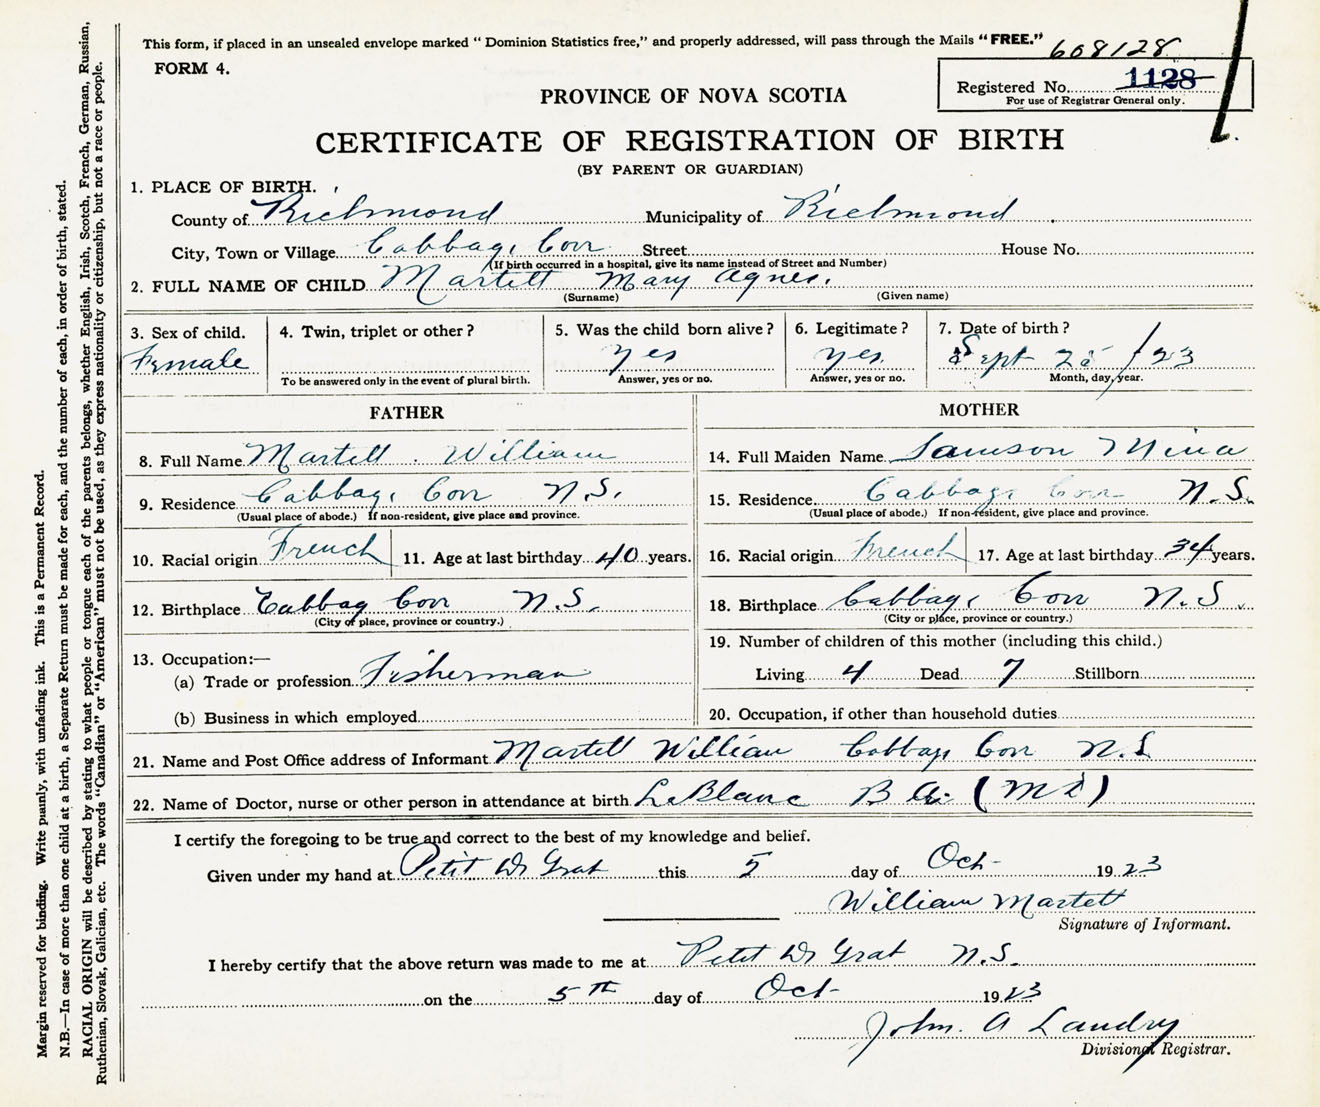 This form, if placed in an unsealed envelope marked "Dominion Statistics free," and properly addressed, will pass through the Mails "FREE."
608128
FORM 4.
Registered No. 1128
For use of Registrar General only.
PROVINCE OF NOVA SCOTIA
CERTIFICATE OF REGISTRATION OF BIRTH
(BY PARENT OR GUARDIAN)
1. PLACE OF BIRTH.
County of Richmond Municipality of Richmond
City, Town or Village Cabbage Cove Street House No.
(If birth occurred in a hospital, give its name instead of Street and Number)
2. FULL NAME OF CHILD Martell Mary Agnes.
(Surname) (Given name)
3. Sex of child. 4. Twin, triplet or other? 5. Was the child born alive? 6. Legitimate? 7. Date of birth?
Female yes yes. Sept 25 /23
To be answered only in the event of plural birth. Answer, yes or no. Answer, yes or no. Month, day, year.
FATHER MOTHER
8. Full Name Martell William 14. Full Maiden Name Samson Mina
9. Residence Cabbage Cove N.S. 15. Residence Cabbage Cove N.S.
(Usual place of abode.) If non-resident, give place and province. (Usual place of abode.) If non-resident, give place and province.
10. Racial origin French 11. Age at last birthday 40 years. 16. Racial origin French 17. Age at last birthday 34 years.
12. Birthplace Cabbag Cove N.S. 18. Birthplace Cabbage Cove N.S.
(City or place, province or country.) (City or place, province or country.)
19. Number of children of this mother (including this child.)
13. Occupation:—
(a) Trade or profession Fisherman Living 4 Dead 7 Stillborn
(b) Business in which employed 20. Occupation, if other than household duties
21. Name and Post Office address of Informant Martell William Cabbage Cove N.S
22. Name of Doctor, nurse or other person in attendance at birth LeBlanc B (MD)
I certify the foregoing to be true and correct to the best of my knowledge and belief.
Given under my hand at Petit De Grat this 5 day of Oct- 1923
William Martell
Signature of Informant.
I hereby certify that the above return was made to me at Petit De Grat N.S.
on the 5th day of Oct- 1923
John. A Landry
Divisional Registrar.
Margin reserved for binding. Write plainly, with unfading ink. This is a Permanent Record.
N.B.—In case of more than one child at a birth, a Separate Return must be made for each, and the number of each, in order of birth, stated.
RACIAL ORIGIN will be described by stating to what people or tongue each of the parents belongs, whether English, Irish, Scotch, French, German, Russian,
Ruthenian, Slovak, Galician, etc. The words "Canadian" or "American" must not be used, as they express nationality or citizenship, but not a race or people.